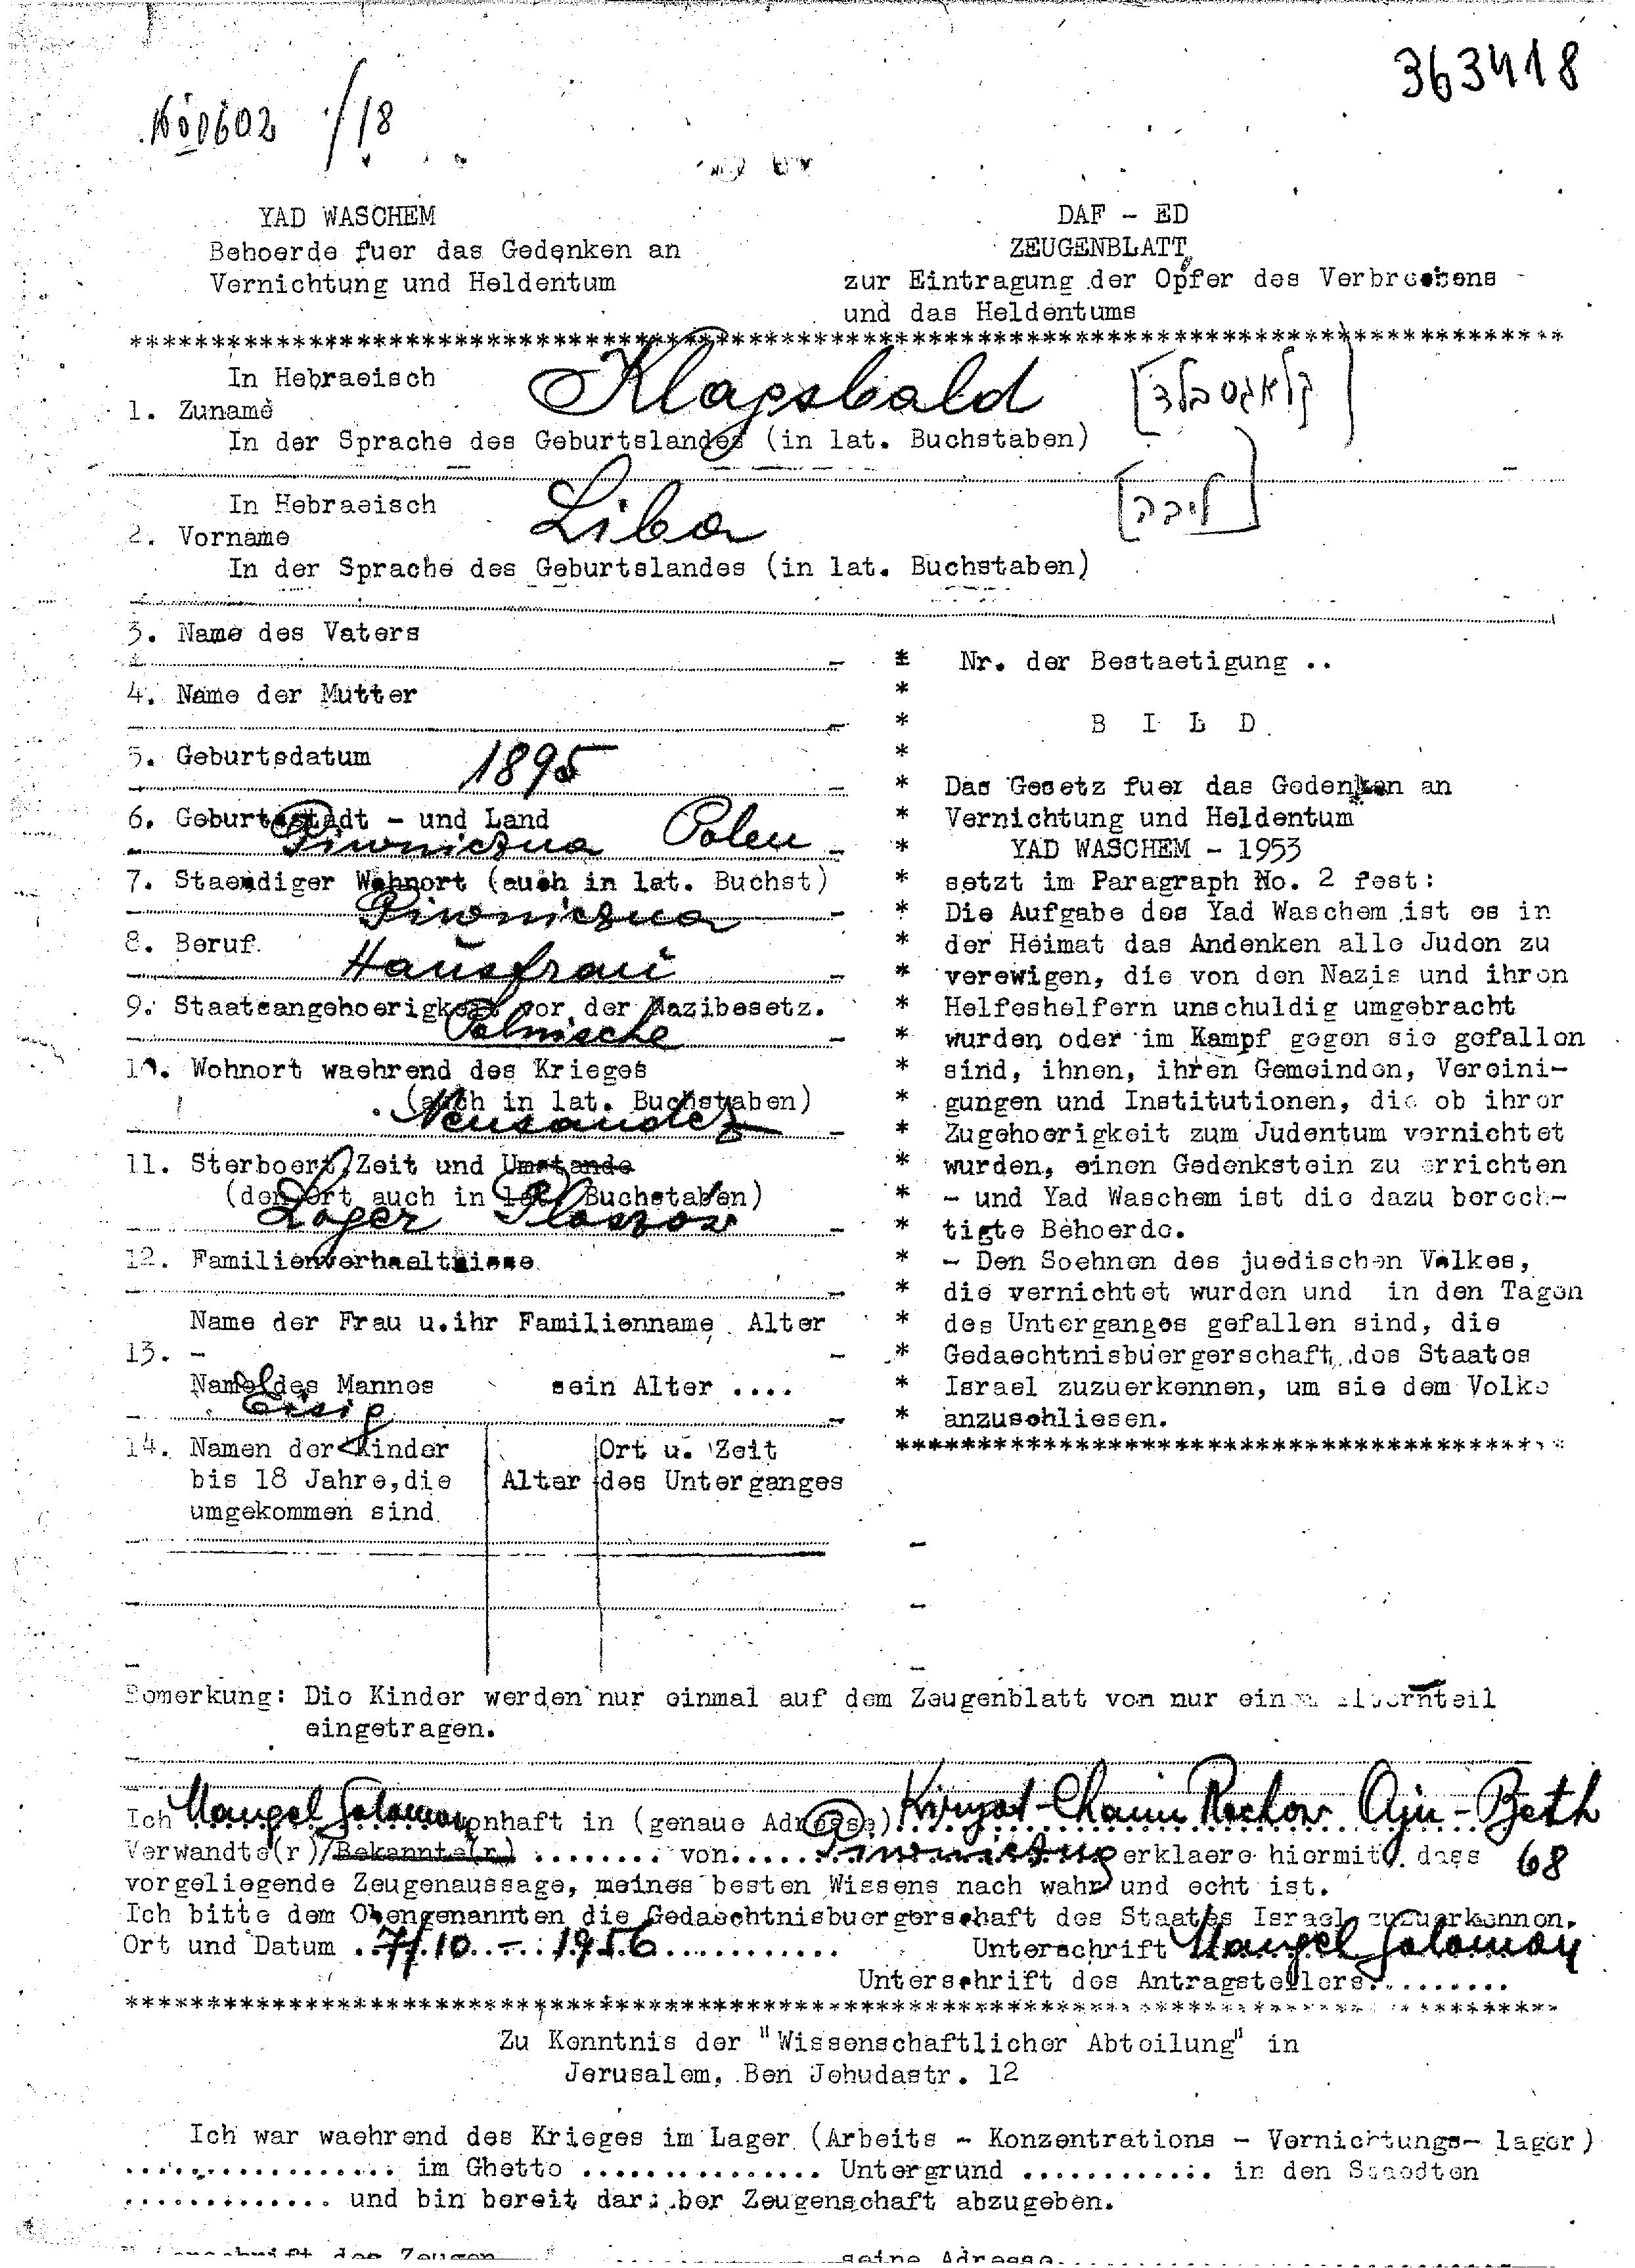 363418
№ 0602 /18
YAD WASCHEM
Behoerde fuer das Gedenken an
Vernichtung und Heldentum
DAF - ED
ZEUGENBLATT
zur Eintragung der Opfer des Verbrechens
und das Heldentums
************************************************************
In Hebraeisch
1. Zuname
Klagsbald [קלאגסבלד]
In der Sprache des Geburtslandes (in lat. Buchstaben)
In Hebraeisch
2. Vorname
Liba [ליבה]
In der Sprache des Geburtslandes (in lat. Buchstaben)
3. Name des Vaters
4. Name der Mutter
5. Geburtsdatum 1895
6. Geburtsstadt - und Land
Piwniczna Polen
7. Staendiger Wohnort (auch in lat. Buchst)
Piwniczna
8. Beruf.
Hausfrau
9. Staatsangehoerigkeit vor der Nazibesetz.
Polnische
10. Wohnort waehrend des Krieges
(auch in lat. Buchstaben)
Neusandez
11. Sterbeort, Zeit und Umstande
(den Ort auch in lat. Buchstaben)
Lager Plaszow
12. Familienverhaeltnisse
Name der Frau u.ihr Familienname Alter
13. -
Name des Mannes sein Alter ....
Eisig
14. Namen der Kinder
bis 18 Jahre,die
umgekommen sind
Alter
Ort u. Zeit
des Unterganges
Nr. der Bestaetigung ..
B I L D
Das Gesetz fuer das Gedenken an
Vernichtung und Heldentum
YAD WASCHEM - 1953
setzt im Paragraph No. 2 fest:
Die Aufgabe des Yad Waschem ist es in
der Heimat das Andenken alle Juden zu
verewigen, die von den Nazis und ihren
Helfeshelfern unschuldig umgebracht
wurden oder im Kampf gegen sie gefallen
sind, ihnen, ihren Gemeinden, Vereini-
gungen und Institutionen, die ob ihrer
Zugehoerigkeit zum Judentum vernichtet
wurden, einen Gedenkstein zu errichten
- und Yad Waschem ist die dazu berech-
tigte Behoerde.
- Den Soehnen des juedischen Valkes,
die vernichtet wurden und in den Tagen
des Unterganges gefallen sind, die
Gedaechtnisbuergerschaft des Staates
Israel zuzuerkennen, um sie dem Volke
anzuschliesen.
****************************************
Bemerkung: Die Kinder werden nur einmal auf dem Zeugenblatt von nur einem Elternteil
eingetragen.
Ich Mangel Salomon wohnhaft in (genaue Adresse) Kiryat-Chaim Rechow Ajin-Beth
Verwandte(r)/Bekannte(r) ........ von Piwniczna erklaere hiermit, dass 68
vorgeliegende Zeugenaussage, meines besten Wissens nach wahr und echt ist.
Ich bitte dem Obengenannten die Gedaechtnisbuergerschaft des Staates Israel zuzuerkennen.
Ort und Datum 7/10 - 1956 Unterschrift Mangel Salomon
Unterschrift des Antragstellers.........
************************************************************
Zu Kenntnis der "Wissenschaftlicher Abteilung" in
Jerusalem, Ben Jehudastr. 12
Ich war waehrend des Krieges im Lager (Arbeits - Konzentrations - Vernichtungs- lager)
................ im Ghetto .............. Untergrund ............ in den Staedten
............ und bin bereit darueber Zeugenschaft abzugeben.
Unterschrift des Zeugen seine Adresse